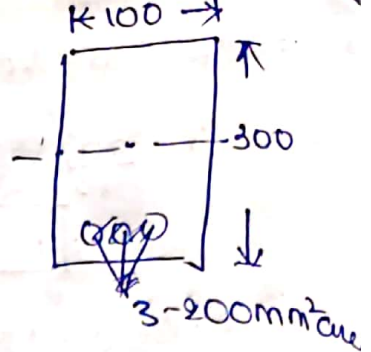 100
300
3-200mm²